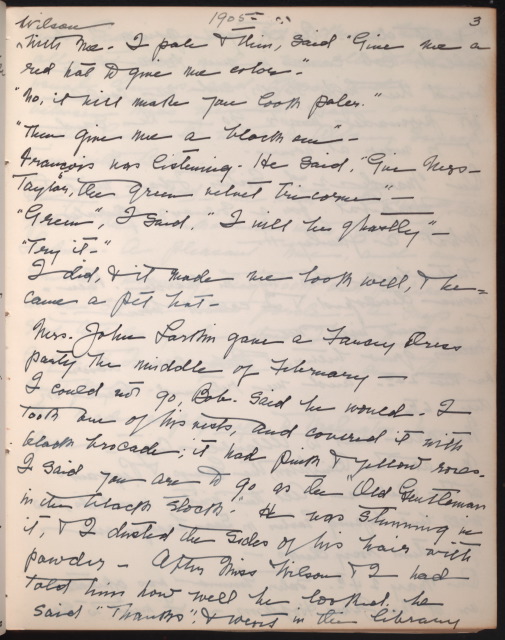 1905 -
3
Wilson
with me. I pale & thin, said "Give me a
red hat to give me color."
"No, it will make you look paler."
"Then give me a black one" -
Francois was listening. He said, "Give Mrs -
Taylor, the green velvet tricorne" -
"Green", I said, "I will be ghastly" -
"Try it -"
I did, & it made me look well, & be=
came a pet hat -
Mrs. John Larkin gave a Fancy Dress
party the middle of February -
I could not go, Bob. said he would. I
took one of his vests, and covered it with
black brocade; it had pink & yellow roses.
I said you are to go as the "Old Gentleman
in the black stock." He was stunning in
it, & I dusted the sides of his hair with
powder - After Miss Wilson & I had
told him how well he looked, he
said "Thanks" & went in the library